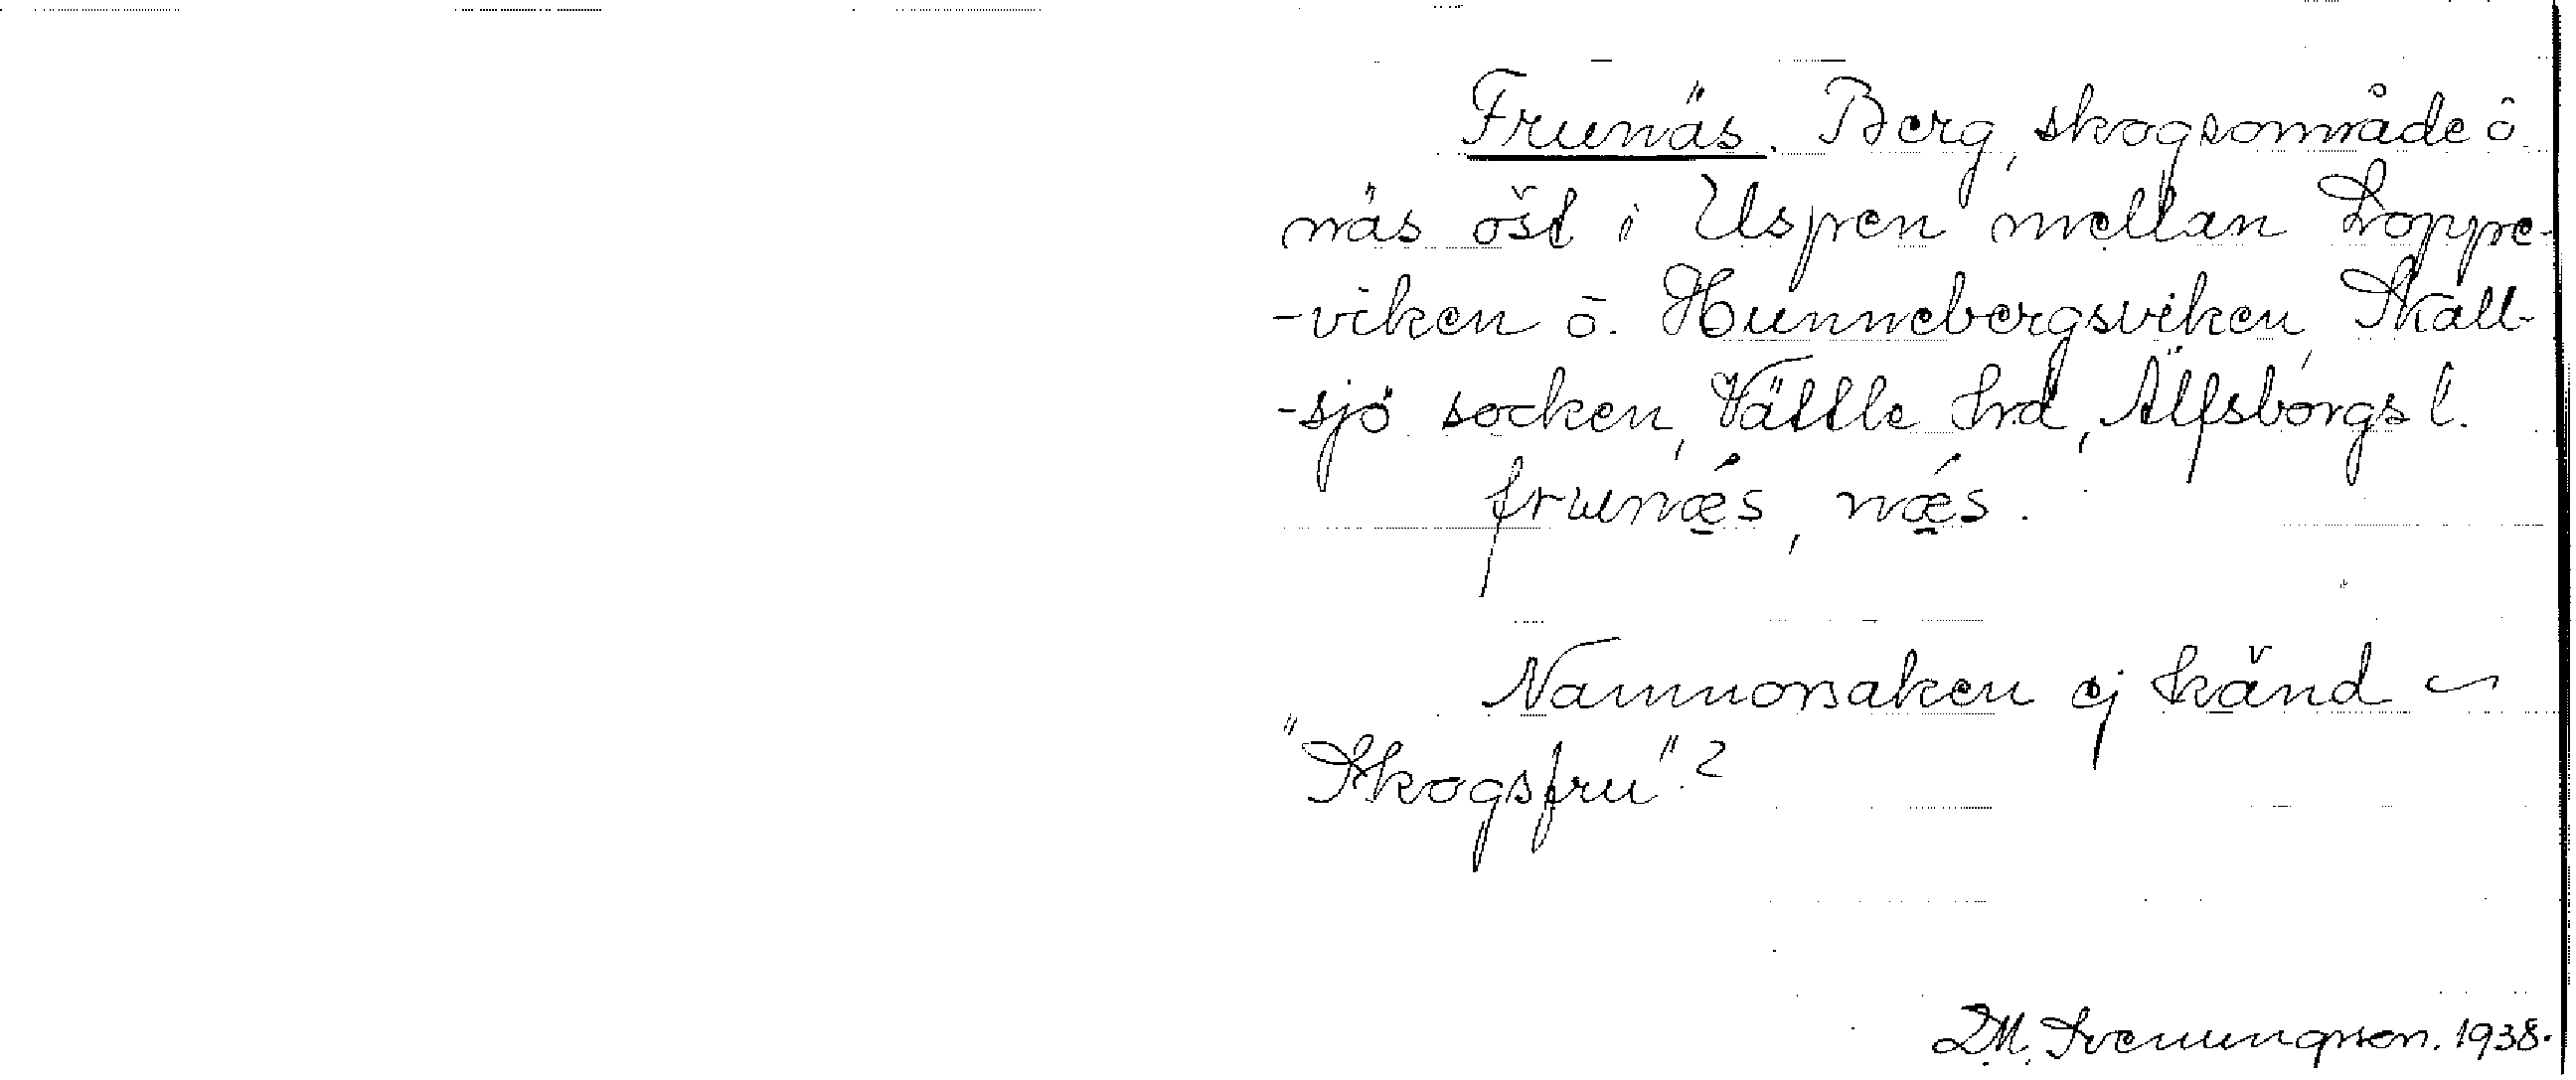 Frunäs. Berg, skogsområde ö
näs öst i Uspen mellan Loppe-
-viken ö. Hunnebergsviken, Skall-
-sjö socken, Vättle hrd, Älfsborgs l.
frunǽs, nǽs.
Namnorsaken ej känd ~
"Skogsfru".?
D.M. Svenungsson. 1938.